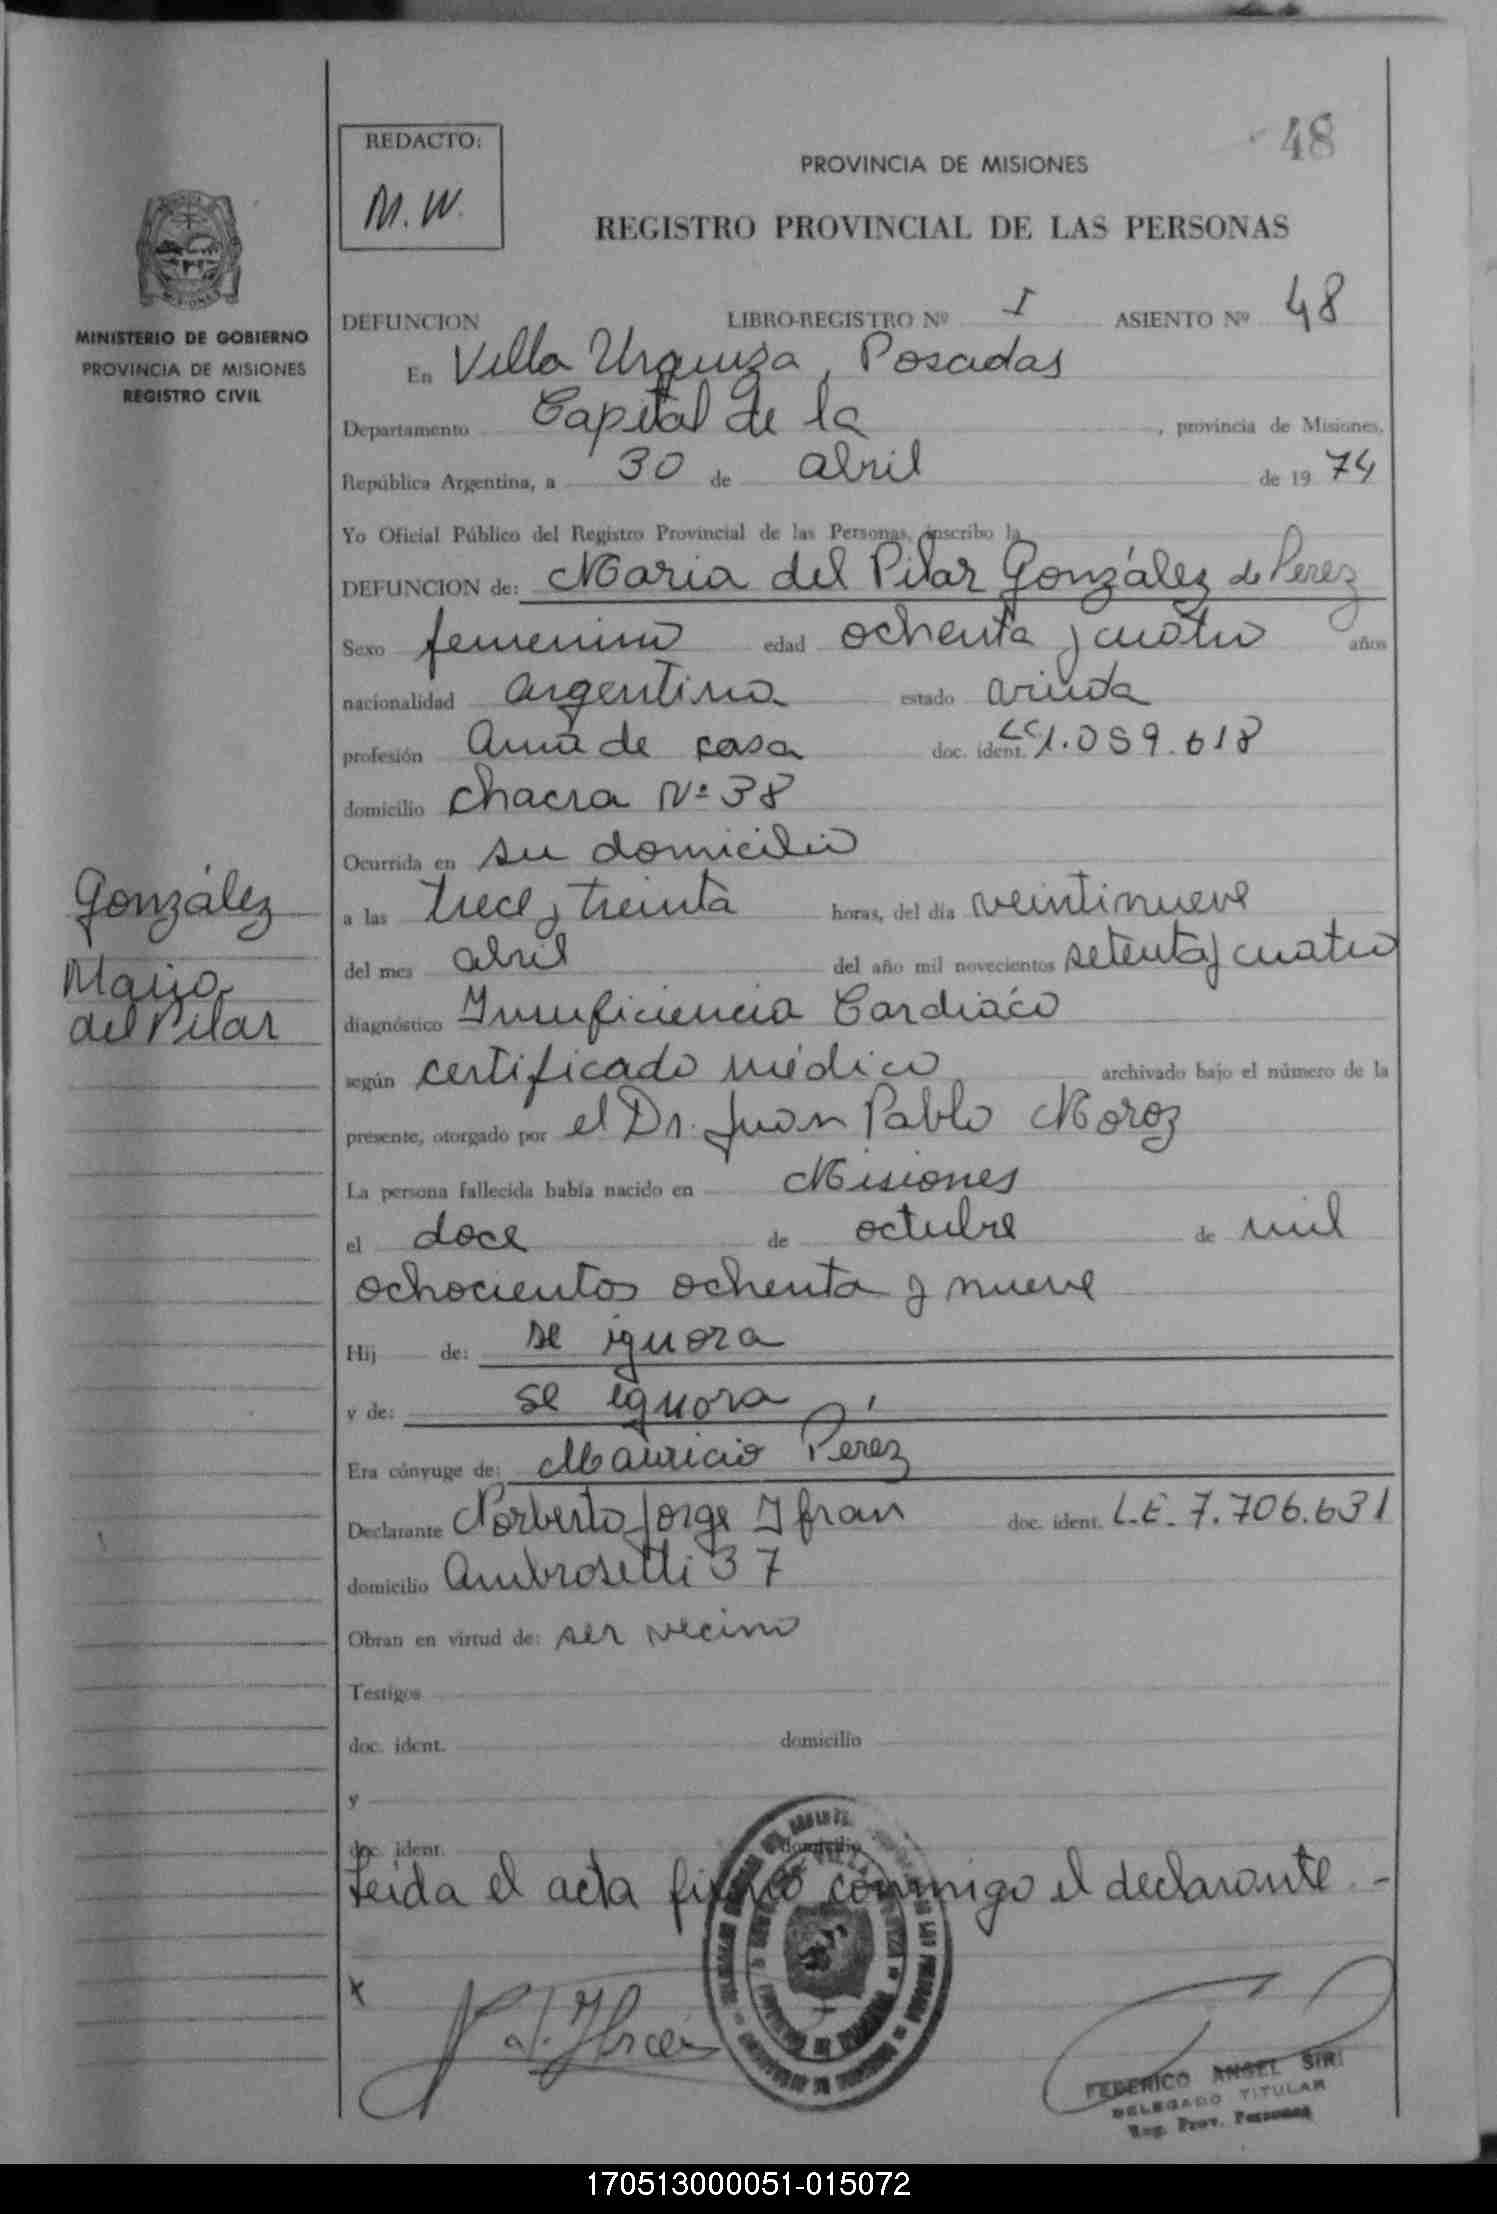 REDACTO:
M. W.
48
PROVINCIA DE MISIONES
REGISTRO PROVINCIAL DE LAS PERSONAS
MINISTERIO DE GOBIERNO
PROVINCIA DE MISIONES
REGISTRO CIVIL
DEFUNCION LIBRO-REGISTRO Nº I ASIENTO Nº 48
En Villa Urquiza, Posadas
Departamento Capital de la, provincia de Misiones,
República Argentina, a 30 de abril de 19 74
Yo Oficial Público del Registro Provincial de las Personas, inscribo la
DEFUNCION de: Maria del Pilar González de Perez
Sexo femenino edad ochenta y cuatro años
nacionalidad argentina estado viuda
profesión Ama de casa doc. ident. LC 1.059.618
domicilio chacra Nº 38
Ocurrida en su domicilio
a las trece y treinta horas, del día veintinueve
del mes abril del año mil novecientos setenta y cuatro
diagnóstico Insuficiencia Cardiáca
según certificado médico archivado bajo el número de la
presente, otorgado por el Dr. Juan Pablo Moroz
La persona fallecida había nacido en Misiones
el doce de octubre de mil
ochocientos ochenta y nueve
Hij de: se ignora
y de: se ignora
Era cónyuge de: Mauricio Pérez
Declarante Norberto Jorge Ifran doc. ident. L.E. 7.706.631
domicilio Ambrosetti 37
Obran en virtud de: ser vecino
Testigos
doc. ident. domicilio
y
doc. ident. domicilio
Leida el acta firmó conmigo el declarante.-
González
Maria
del Pilar
x
N. J. Ifran
FEDERICO ANGEL SIRI
DELEGADO TITULAR
Reg. Prov. Personas
170513000051-015072